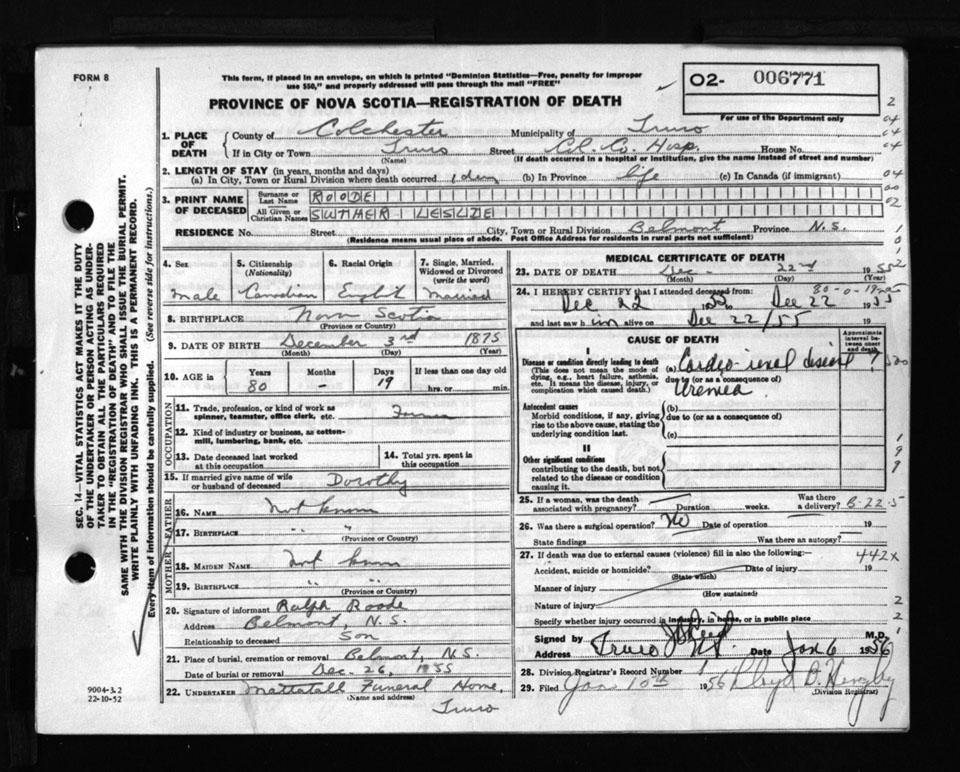 FORM 8
This form, if placed in an envelope, on which is printed "Dominion Statistics—Free, penalty for improper
use $50," and properly addressed will pass through the mail "FREE"
02- 006771
For use of the Department only
PROVINCE OF NOVA SCOTIA—REGISTRATION OF DEATH
1. PLACE OF DEATH
County of Colchester Municipality of Truro
If in City or Town Truro Street Col. Co. Hosp. House No.
(Name) (If death occurred in a hospital or institution, give the name instead of street and number)
2. LENGTH OF STAY (in years, months and days)
(a) In City, Town or Rural Division where death occurred 1 day (b) In Province life (c) In Canada (if immigrant)
3. PRINT NAME OF DECEASED
Surname or Last Name ROODE
All Given or Christian Names LESLIE
RESIDENCE No. Street City, Town or Rural Division Belmont Province N.S.
(Residence means usual place of abode. Post Office Address for residents in rural parts not sufficient)
4. Sex Male
5. Citizenship (Nationality) Canadian
6. Racial Origin English
7. Single, Married, Widowed or Divorced (write the word) Married
8. BIRTHPLACE Nova Scotia
(Province or Country)
9. DATE OF BIRTH December 3rd 1875
(Month) (Day) (Year)
10. AGE in Years Months Days If less than one day old
80 - 19 hrs. or min.
OCCUPATION
11. Trade, profession, or kind of work as spinner, teamster, office clerk, etc. Farmer
12. Kind of industry or business, as cotton-mill, lumbering, bank, etc.
13. Date deceased last worked at this occupation
14. Total yrs. spent in this occupation
15. If married give name of wife or husband of deceased Dorothy
FATHER
16. NAME Not known
17. BIRTHPLACE " "
(Province or Country)
MOTHER
18. MAIDEN NAME Not known
19. BIRTHPLACE " "
(Province or Country)
20. Signature of informant Ralph Roode
Address Belmont, N.S.
Relationship to deceased Son
21. Place of burial, cremation or removal Belmont, N.S.
Date of burial or removal Dec. 26, 1955
22. UNDERTAKER Mattatall Funeral Home,
(Name and address)
Truro
MEDICAL CERTIFICATE OF DEATH
23. DATE OF DEATH Dec. 22nd 1955
(Month) (Day) (Year)
24. I HEREBY CERTIFY that I attended deceased from:
Dec 22 1955 to Dec 22 1955
and last saw him alive on Dec 22/55 19
CAUSE OF DEATH
Approximate interval between onset and death
Disease or condition directly leading to death
(This does not mean the mode of dying, e.g., heart failure, asthenia, etc. It means the disease, injury, or complication which caused death.)
(a) Cardio-renal disease ?
due to (or as a consequence of)
Uremia.
Antecedent causes
Morbid conditions, if any, giving rise to the above cause, stating the underlying condition last.
(b)
due to (or as a consequence of)
(c)
II
Other significant conditions contributing to the death, but not related to the disease or condition causing it.
25. If a woman, was the death associated with pregnancy? Duration weeks. Was there a delivery?
26. Was there a surgical operation? No Date of operation 19
State findings Was there an autopsy?
27. If death was due to external causes (violence) fill in also the following:— 442X
Accident, suicide or homicide? Date of injury 19
(State which)
Manner of injury
(How sustained)
Nature of injury
Specify whether injury occurred in industry, in home, or in public place
Signed by M.D.
Address Truro N.S. Date Jan 6 1956
28. Division Registrar's Record Number 1
29. Filed Jan 10th 1956
(Division Registrar)
SEC. 14—VITAL STATISTICS ACT MAKES IT THE DUTY
OF THE UNDERTAKER OR PERSON ACTING AS UNDER-
TAKER TO OBTAIN ALL THE PARTICULARS REQUIRED
IN THE "REGISTRATION OF DEATH" AND TO FILE THE
SAME WITH THE DIVISION REGISTRAR WHO SHALL ISSUE THE BURIAL PERMIT.
WRITE PLAINLY WITH UNFADING INK. THIS IS A PERMANENT RECORD.
Every item of information should be carefully supplied. (See reverse side for instructions.)
9004-3.2
22-10-52